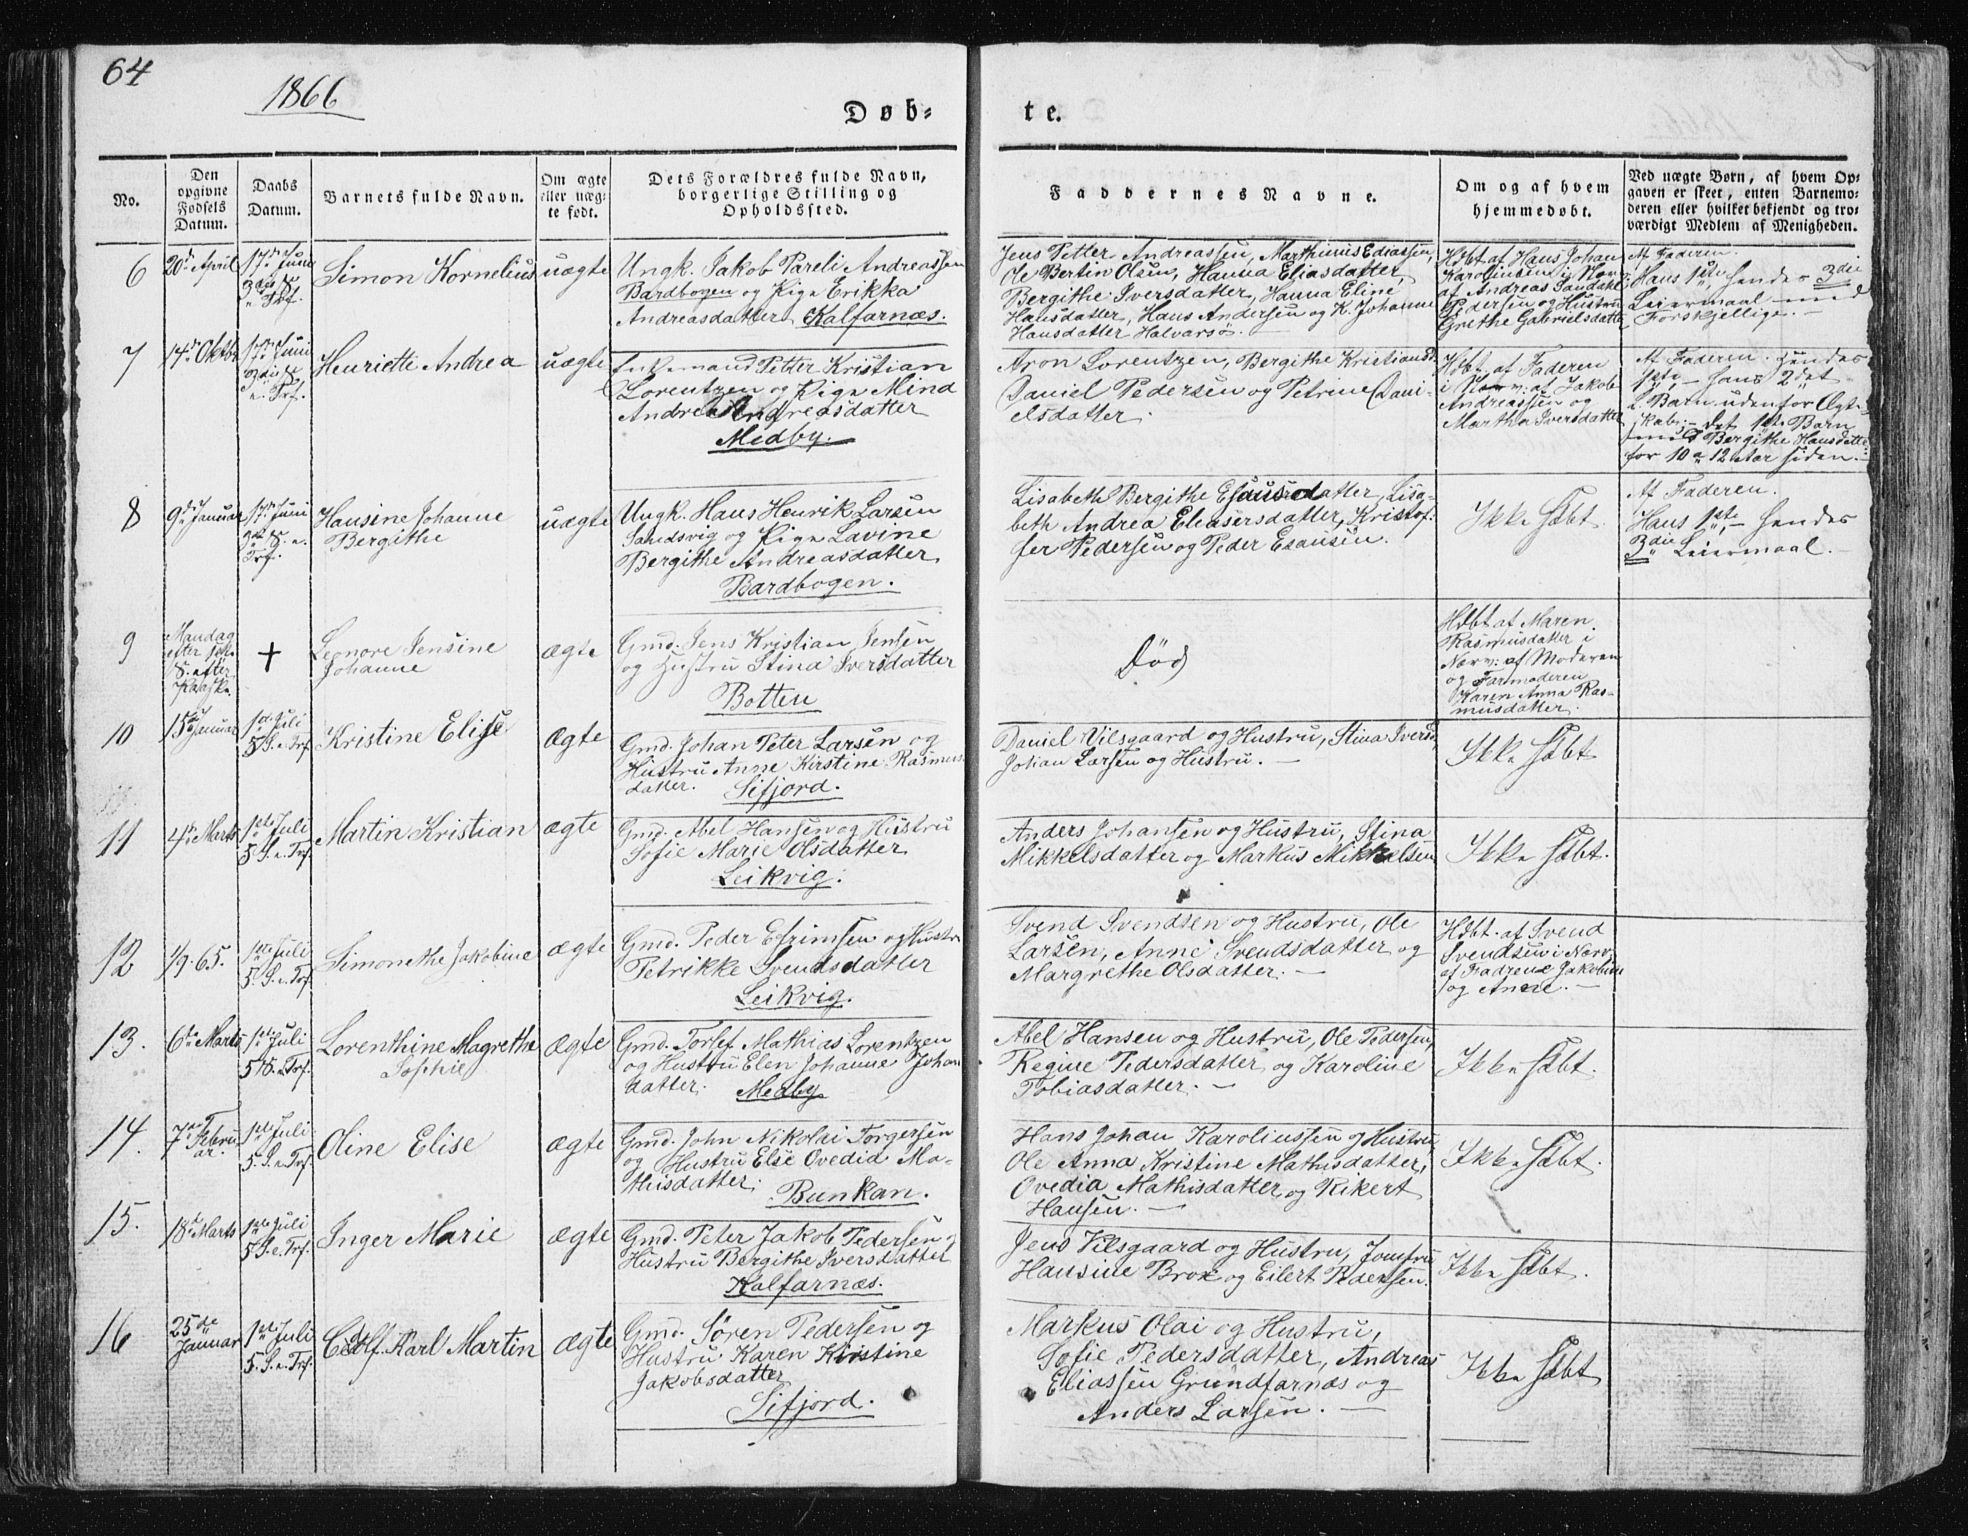 64
1866
Døb-
te.
No.
Den opgivne Fødsels Datum.
Daabs Datum.
Barnets fulde Navn.
Om ægte eller uægte født.
Dets Forældres fulde Navn, borgerlige Stilling og Opholdssted.
Faddernes Navne.
Om og af hvem hjemmedøbt.
Ved uægte Børn, af hvem Opgaven er skeet, enten Barnemoderen eller hvilket bekjendt og troværdigt Medlem af Menigheden.
6
20de April
17de Juni
3die S. e. Trf.
Simon Kornelius
uægte
Ungk. Jakob Pareli Andreassen
Bardbogen og Pige Erikka
Andreasdatter, Kalfarnæs.
Jens Petter Andreassen, Marthinus Ediassen,
Ole Bertin Olsen, Hanna Eliasdatter,
Bergithe Iversdatter, Hanna Eline
Hansdatter, Hans Andersen og K. Johanne
Hansdatter Halvarsø.
Hdbt af Hans Johan
Karolinsen i Nærv.
af Andreas Sandahl
Pedersen og Hustru
Grethe Gabrielsdatter
Af Faderen.
Hans 1ste, hendes 3die
Leiermaal med
Forskjellige.
7
14de Oktbr
17de Juni
3die S. e. Trf.
Henriette Andrea
uægte
Enkemand Petter Kristian
Lorentzen og Pige Mind
Andrea Andreasdatter
Medby.
Aron Lorentzen, Bergithe Kristiansd.
Daniel Pedersen og Petrine Dani-
elsdatter.
Hdbt. af Faderen
i Nærv. af Jakob
Andreassen og
Martha Iversdatter
Af Faderen. Hendes
1ste, hans 2det
Barn udenfor Ægte-
skab; det 1ste Barn
med Bergithe Hansdatter
for 10 a 12 Aar siden.
8
9de Januar
17de Juni
3die S. e. Trf.
Hansine Johanne
Bergithe
uægte
Ungk. Hans Henrik Larsen
Sandsvig og Pige Lavine
Bergithe Andreasdatter
Bardbogen.
Lisabeth Bergithe Esausdatter, Lisa-
beth Andrea Eleasersdatter, Kristof-
fer Pedersen og Peder Esausen.
Ikke Hdbt.
Af Faderen.
Hans 1ste, hendes
3die Leiermaal.
9
Mandag
efter
S. efter
Paaske.
+
Leonore Jensine
Johanne
ægte
Gmd. Jens Kristian Jensen
og Hustru Stina Iversdatter
Botten
Død
Hdbt af Maren
Rasmusdatter i
Nærv. af Moderen
og Farmoderen
Karen Anna Ras-
musdatter.
10
15de Januar
1ste Juli
5 S. e. Trf.
Kristine Elise
Ægte
Gmd. Johan Peter Larsen og
Hustru Anne Kirstine Rasmus-
datter. Sifjord.
Daniel Vilsgaard og Hustru, Stina Iversd.
Johan Larsen og Hustru.
Ikke Hdbt
11
4de Marts
1ste Juli
5 S. e. Trf.
Martin Kristian
ægte
Gmd. Abel Hansen og Hustru
Sofie Marie Olsdatter
Leikvig.
Anders Johansen og Hustru, Stina
Mikkelsdatter og Markus Mikkelsen
Ikke Hdbt.
12
1/9. 65.
1ste Juli
5. S. e. Trf.
Simonethe Jakobine
ægte
Gmd. Peder Efrimsen og Hustru
Petrikke Svendsdatter
Leikvig.
Svend Svendsen og Hustru, Ole
Larsen, Anne Svendsdatter og
Margrethe Olsdatter.
Hdbt. af Svend
Svendsen i Nærv.
af Fadrene Jakobine
og Anne.
13.
6te Marts
1ste Juli
5 S. e. Trf.
Lorenthine Magrethe
Sophie
ægte
Gmd. Torlef Mathias Lorentzen
og Hustru Elen Johanne Johan
datter. Medby.
Abel Hansen og Hustru, Ole Pedersen,
Regine Pedersdatter og Karoline
Tobiasdatter.
Ikke Hdbt.
14.
7de Febru
ar.
1ste Juli
5. S. e. Trf.
Oline Elise
ægte
Gmd. John Nikolai Torgersen
og Hustru Else Ovedia Ma-
thisdatter. Bunkan.
Hans Johan Karoliussen og Hustru,
Ole Anna Kristine Mathisdatter,
Ovedia Mathisdatter og Rikert
Hansen.
Ikke Hdbt.
15.
18de Marts
1ste Juli
5 S. e. Trf.
Inger Marie
ægte
Gmd. Peter Jakob Pedersen og
Hustru Bergithe Iversdatter
Kalfarnæs.
Jens Vilsgaard og Hustru, Jomfru
Hansine Brox og Eilert Pedersen.
Ikke Hdbt.
16
25de
Januar
1ste Juli
5. S. e. Trf.
Karl Martin
ægte
Gmd. Søren Pedersen og
Hustru Karen Kirstine
Jakobsdatter
Sifjord.
Markus Olai og Hustru,
Sofie Pedersdatter, Andreas
Eliassen Grundfarnæs og
Anders Larsen.
Ikke Hdbt